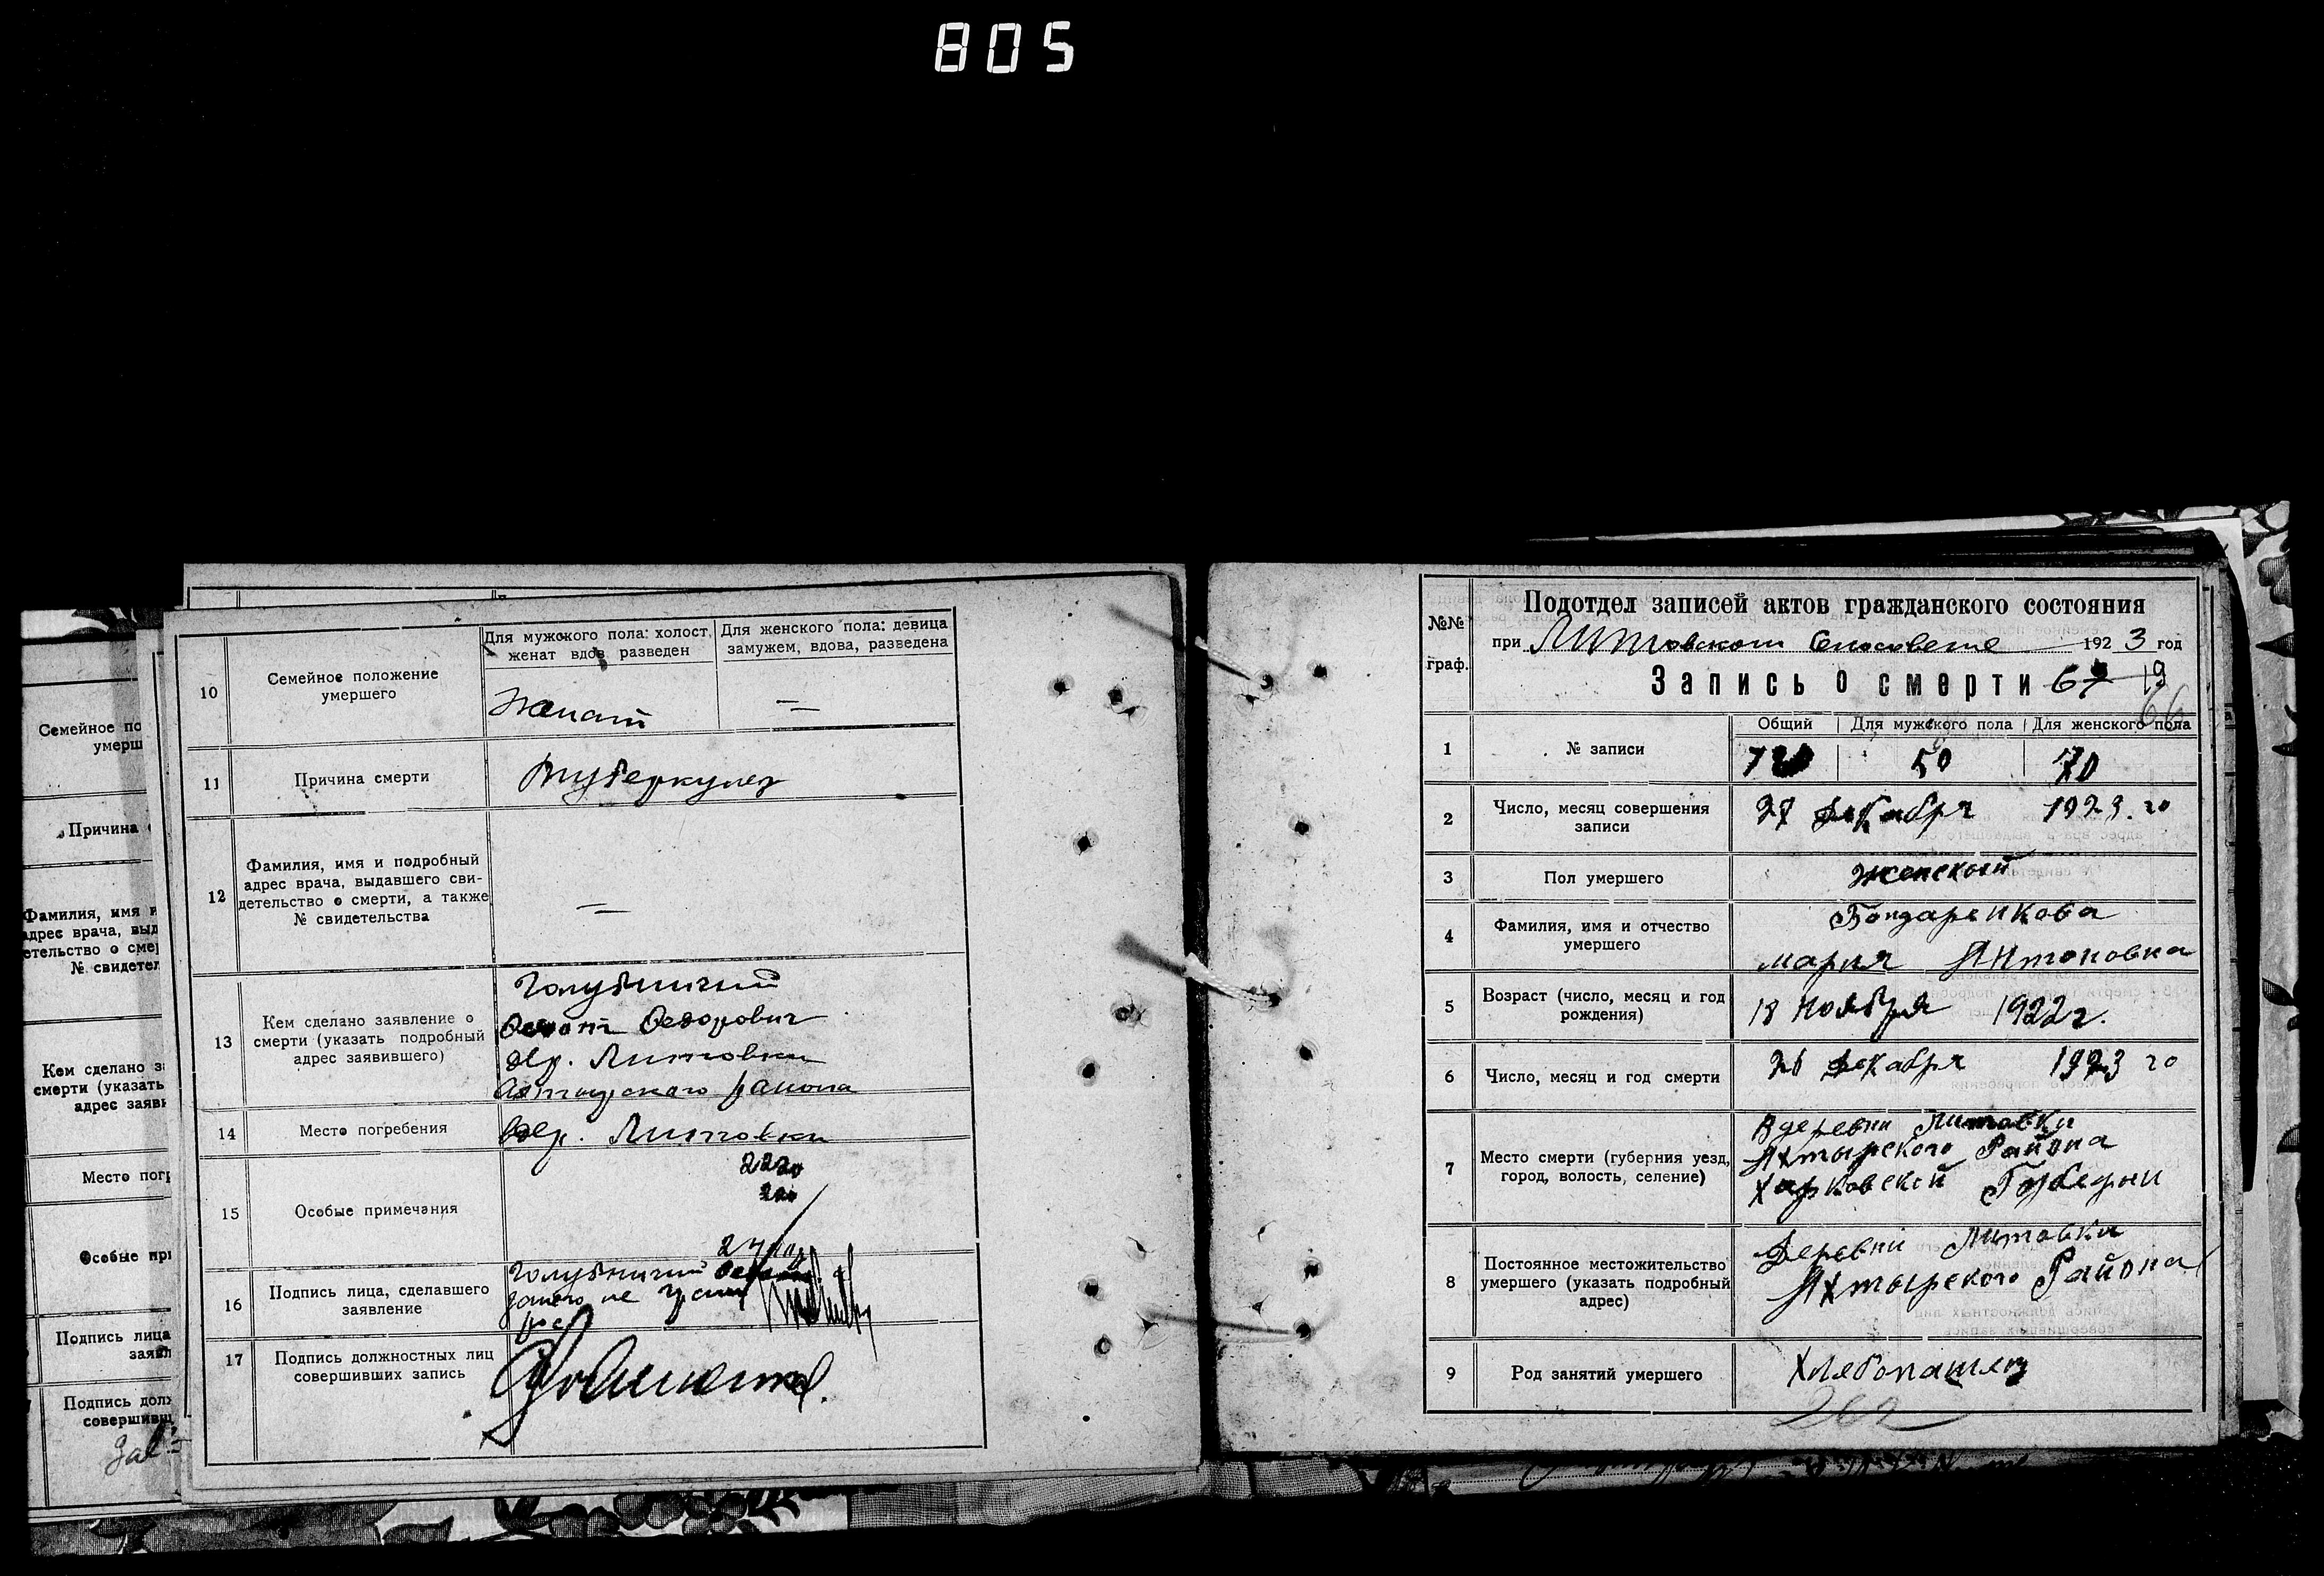 805
Семейное по
умерш
Причина
Фамилия, имя и
адрес врача, выд
етельство о смер
№ свидетел
Кем сделано за
смерти (указать
адрес заявв
Место погр
Особые при
Подпись лица
заявл
Подпись долж
совершивш
Зав
10
Семейное положение
умершего
Для мужского пола: холост,
женат вдов разведен
Для женского пола: девица
замужем, вдова, разведена
Женат
—
11
Причина смерти
Туберкулез
12
Фамилия, имя и подробный
адрес врача, выдавшего сви-
детельство о смерти, а также
№ свидетельства
—
13
Кем сделано заявление о
смерти (указать подробный
адрес заявившего)
Голубничий
Федорович
дер. Литовки
Ахтырского района
14
Место погребения
В дер. Литовки
15
Особые примечания
16
Подпись лица, сделавшего
заявление
Голубничий
17
Подпись должностных лиц
совершивших запись
№№
граф.
Подотдел записей актов гражданского состояния
при Литовском Сельсовете 1923 год
Запись о смерти
66
1
№ записи
Общий
Для мужского пола
Для женского пола
50
70
2
Число, месяц совершения
записи
27 Декабря 1923 го
3
Пол умершего
Женский
4
Фамилия, имя и отчество
умершего
Бондаренкова
мария Антоновна
5
Возраст (число, месяц и год
рождения)
18 Ноября 1922 г.
6
Число, месяц и год смерти
26 Декабря 1923 го
7
Место смерти (губерния уезд,
город, волость, селение)
В деревни Литовки
Ахтырского Района
Харковской Губерни
8
Постоянное местожительство
умершего (указать подробный
адрес)
Деревни Литовки
Ахтырского Района
9
Род занятий умершего
Хлебопашец
262